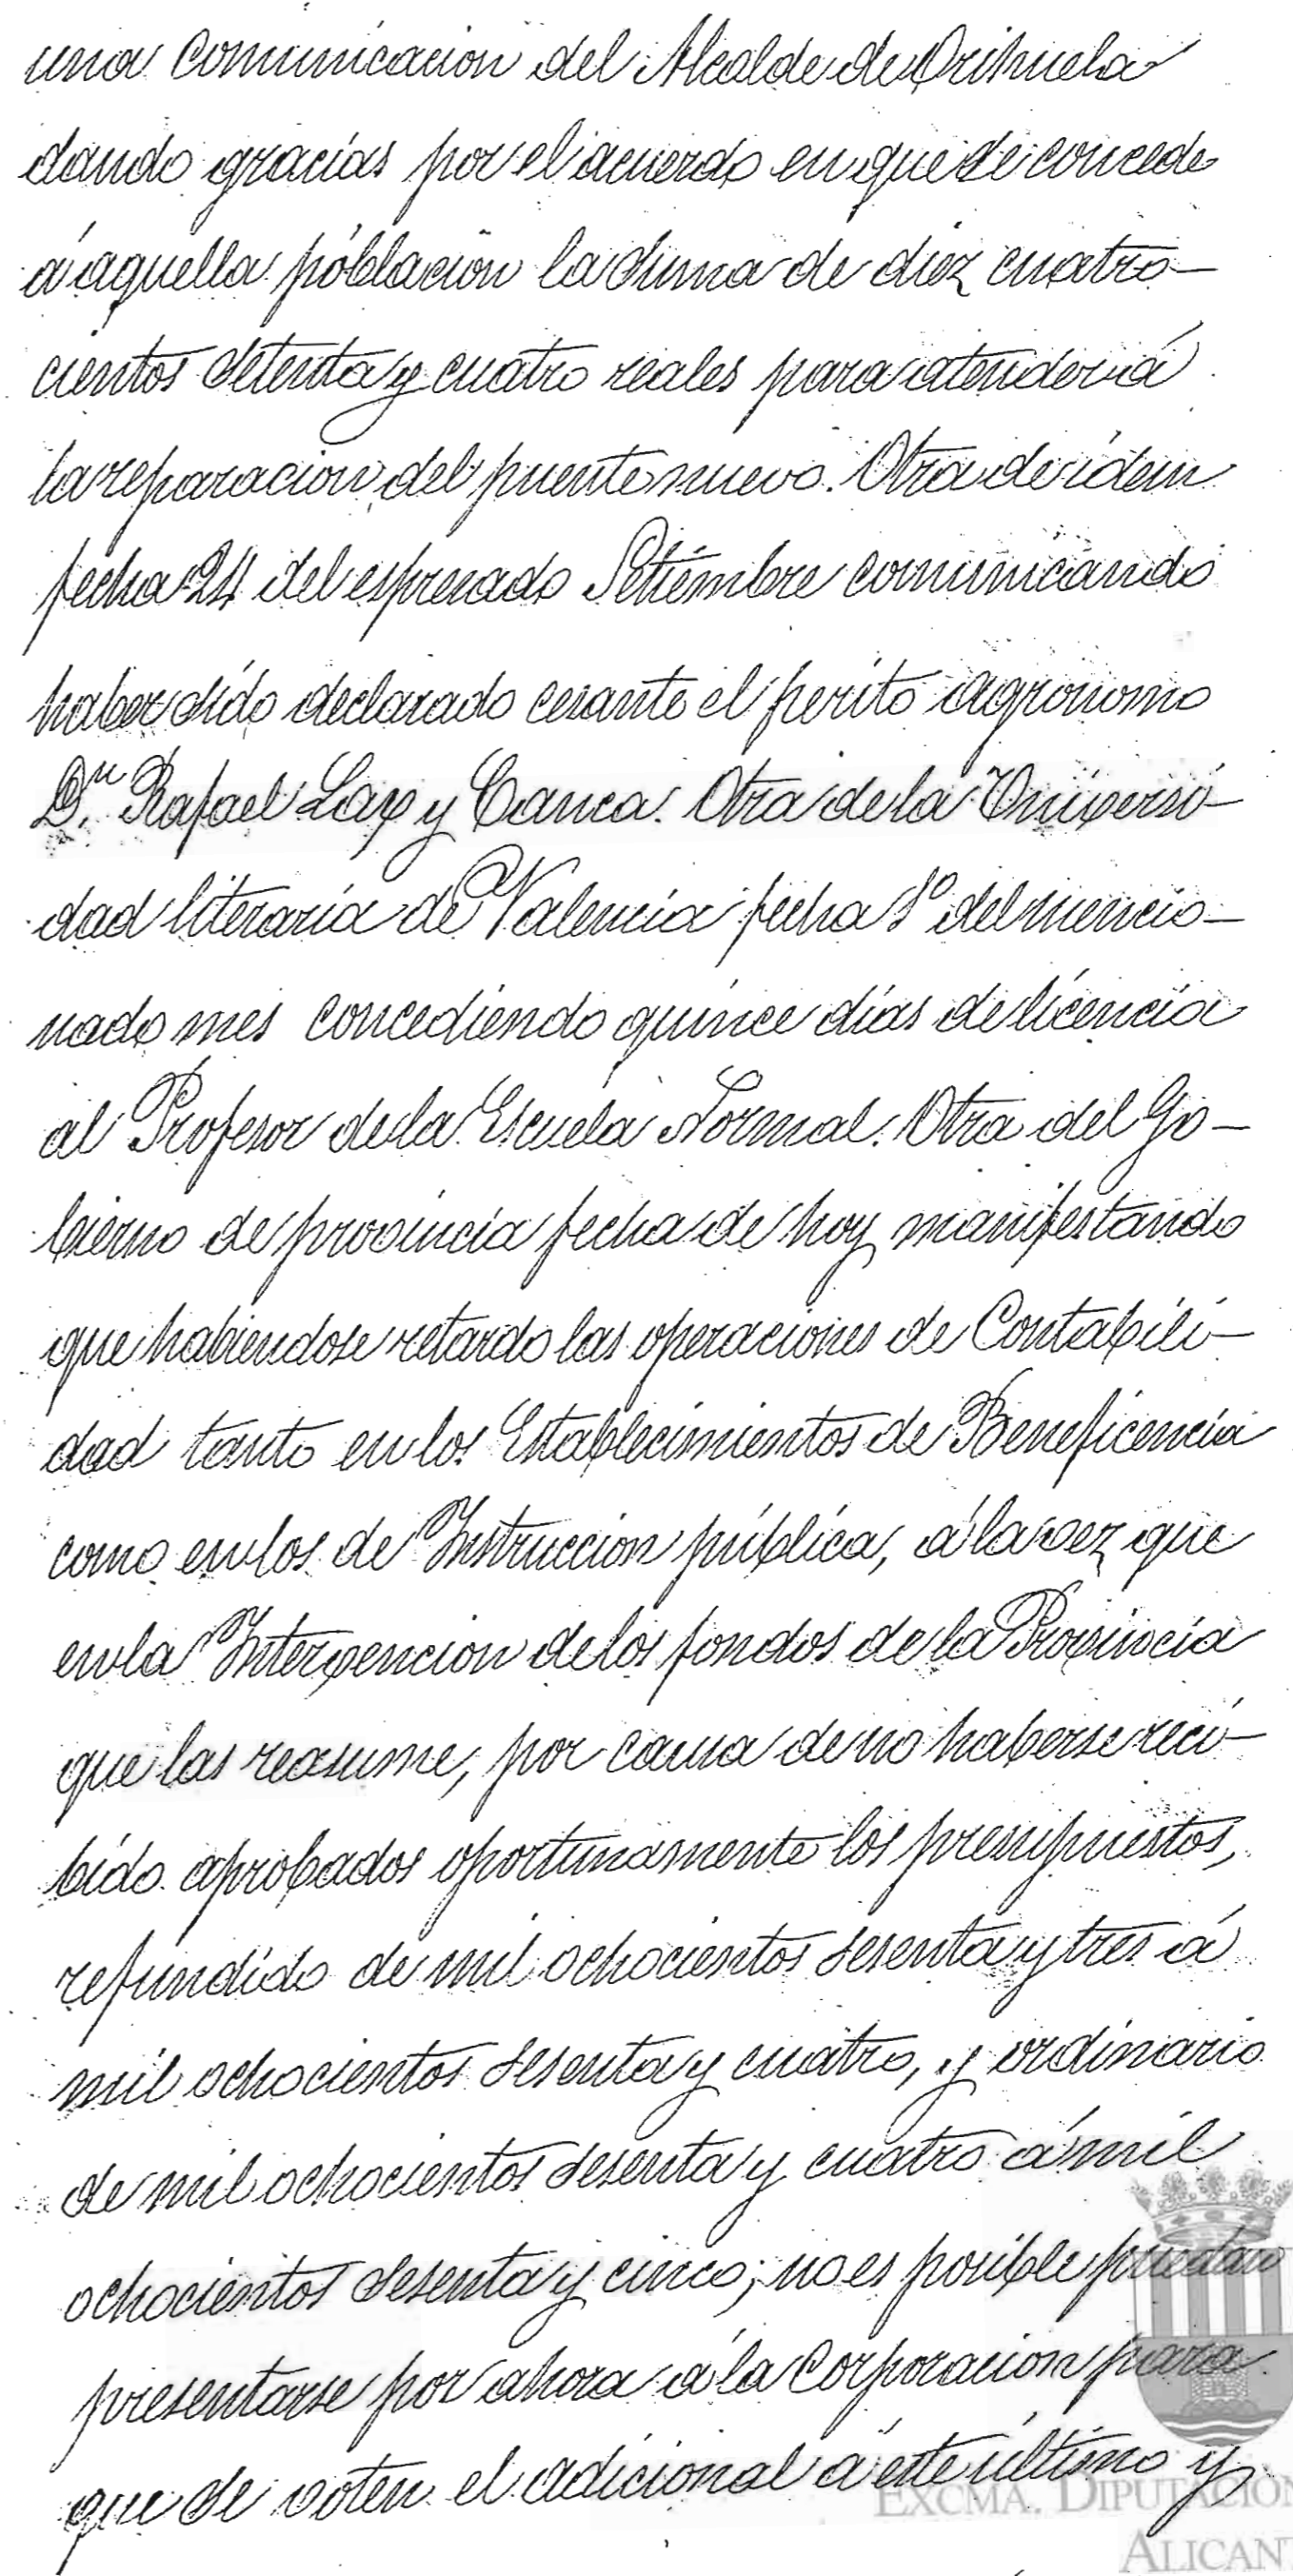 una comunicacion del Alcalde de Orihuela
dando gracias por el acuerdo en que se concede
á aquella poblacion la suma de diez cuatro-
cientos setenta y cuatro reales para atender á
la reparacion del puente nuevo. Otra de idem
fecha 24 del espresado Setiembre comunicando
haber sido declarado cesante el perito agronomo
D.n Rafael y Otra de la Universi-
dad literaria de Valencia fecha 1º del mencio-
nado mes concediendo quince dias de licencia
al Profesor de la Escuela Normal. Otra del Go-
bierno de provincia fecha de hoy manifestando
que habiendose retardo las operaciones de Contabili-
dad tanto en los Establecimientos de Beneficencia
como en los de Instruccion pública, á la vez que
en la Intervencion de los fondos de la Provincia
que las reasume, por causa de no haberse reci-
bido aprobados oportunamente los presupuestos,
refundido de mil ochocientos sesenta y tres á
mil ochocientos sesenta y cuatro, y ordinario
de mil ochocientos sesenta y cuatro á mil
ochocientos sesenta y cinco; no es posible puedan
presentarse por ahora á la Corporacion para
que se voten el adicional á este último y
EXCMA. DIPUTACION
ALICANT